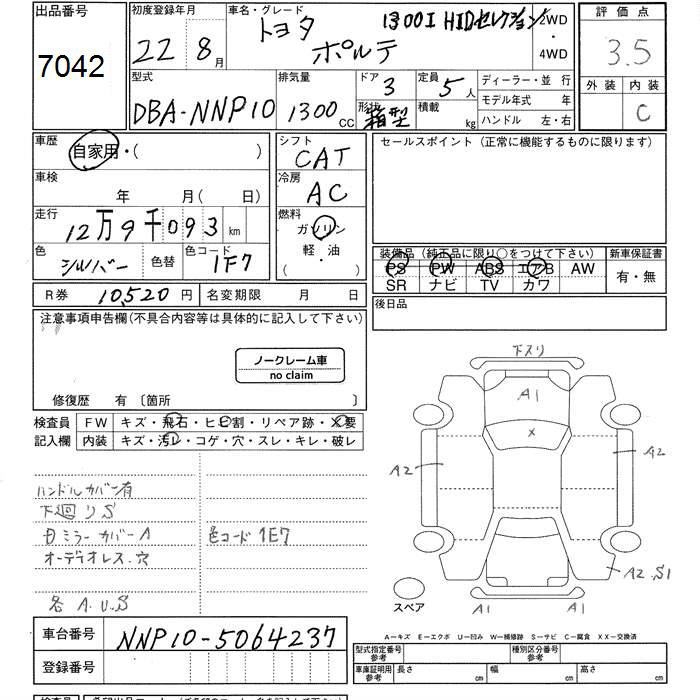 出品番号 初度登録年月 車名・グレード 評価点
7042 22年 8月 トヨタ ポルテ 1300I HIDセレクション 2WD・4WD 3.5
外装 内装
C
型式 排気量 ドア 定員 ディーラー・並 行
DBA-NNP10 1300cc 3 5人 モデル年式 年
形状 箱型 積載 kg ハンドル 左・右
車歴 自家用・( ) シフト CAT セールスポイント (正常に機能するものに限ります)
車検 年 月(日) 冷房 AC
走行 12万9千093km 燃料 ガソリン
軽・油
( ・ )
色 シルバー 色替 色コード 1F7
装備品 (純正品に限り○をつけて下さい) 新車保証書
PS PW ABS エアB AW 有・無
SR ナビ TV カワ
R券 10,520円 名変期限 月 日 後日品
注意事項申告欄(不具合内容等は具体的に記入して下さい)
ノークレーム車
no claim
修復歴 有 〔箇所 〕
検査員 FW キズ・飛石・ヒビ割・リペア跡・X要
記入欄 内装 キズ・汚レ・コゲ・穴・スレ・キレ・破レ
ハンドルカバー有
下廻りS
ミラーカバーA 色コード1E7
オーディオレス.穴
各A.U.S
下スリ
A1
X
A2 A2
A2.S1
A1 A1
スペア
A—キズ E—エクボ U—凹み W—補修跡 S—サビ C—腐食 XX—交換済
車台番号 NNP10-5064237
登録番号
型式指定番号 参考 種別区分番号 参考
車庫証明用 参考 長さ cm 幅 cm 高さ cm